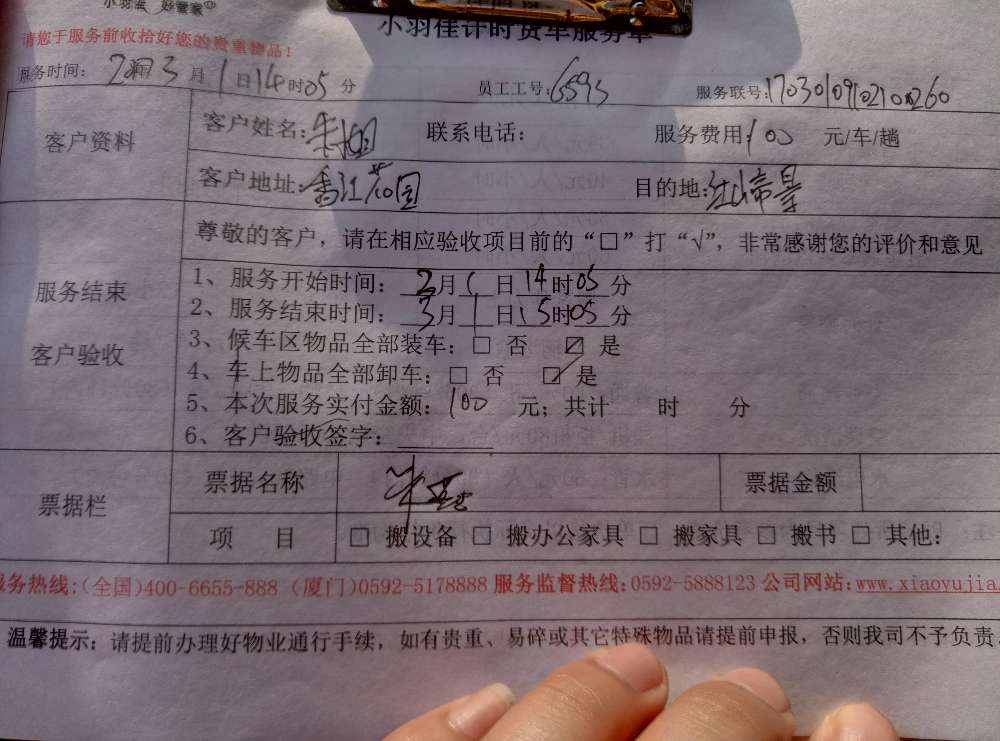 小羽佳 好管家®
小羽佳计时货车服务单
请您于服务前收拾好您的贵重物品！
服务时间： 3月1日14时05分 员工工号：6593 服务联号：
客户资料
客户姓名： 联系电话： 服务费用：100 元/车/趟
客户地址：香江花园 目的地：江山帝景
服务结束
客户验收
尊敬的客户，请在相应验收项目前的“□”打“√”，非常感谢您的评价和意见
1、服务开始时间：2月1日14时05分
2、服务结束时间：3月1日15时05分
3、候车区物品全部装车：□ 否 ☑ 是
4、车上物品全部卸车：□ 否 ☑ 是
5、本次服务实付金额：100 元；共计 时 分
6、客户验收签字：
票据栏
票据名称 票据金额
项 目 □ 搬设备 □ 搬办公家具 □ 搬家具 □ 搬书 □ 其他：
服务热线:(全国)400-6655-888 (厦门)0592-5178888 服务监督热线:0592-5888123 公司网站:www.xiaoyujia
温馨提示：请提前办理好物业通行手续，如有贵重、易碎或其它特殊物品请提前申报，否则我司不予负责